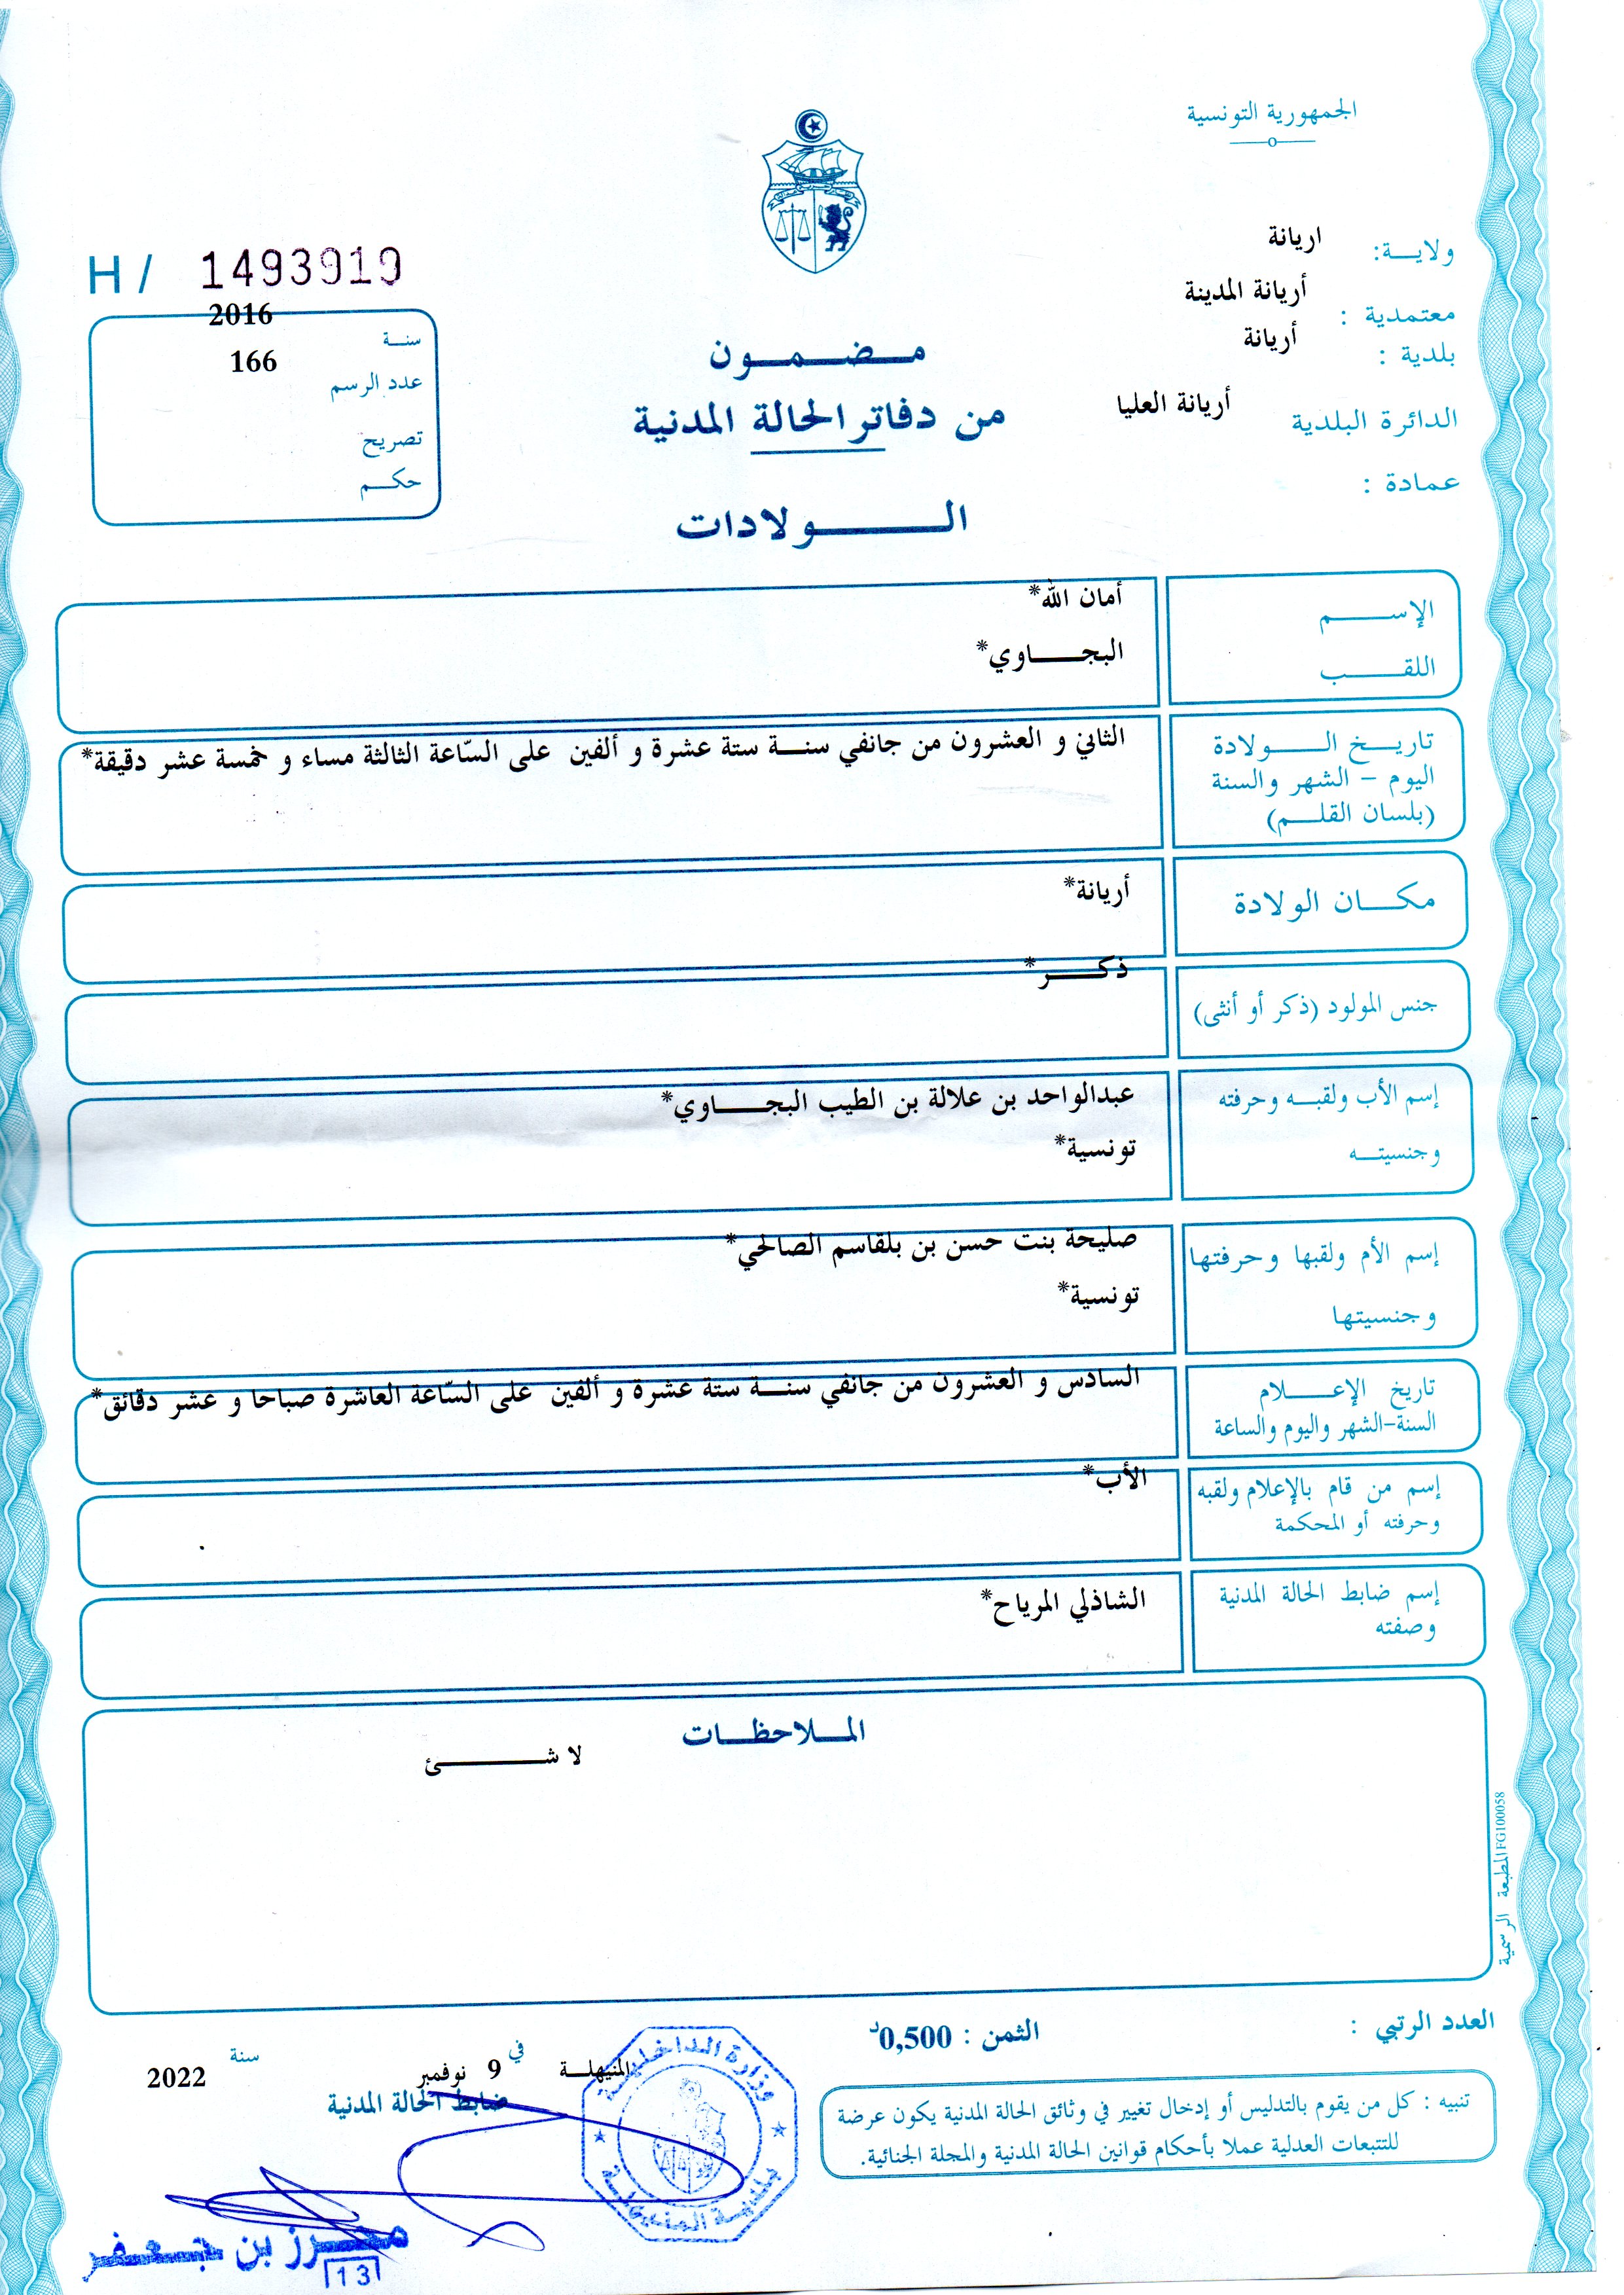 الجمهورية التونسية
ولايـــة: اريانة
معتمدية : أريانة المدينة
بلدية : أريانة
الدائرة البلدية أريانة العليا
عمادة :
H / 1493919
سنــة 2016
عدد الرسم 166
تصريح
حكــم
مــضــمــون
من دفاتر الحالة المدنية
الـــولادات
الإســــم أمان الله*
اللقــــب البجــــاوي*
تاريــخ الــــولادة الثاني و العشرون من جانفي سنــة ستة عشرة و ألفين على السّاعة الثالثة مساء و خمسة عشر دقيقة*
اليوم – الشهر والسنة
(بلسان القلــم)
مكــان الولادة أريانة*
جنس المولود (ذكر أو أنثى) ذكــــر*
إسم الأب ولقبــه وحرفته عبدالواحد بن علالة بن الطيب البجــــاوي*
وجنسيتــه تونسية*
إسم الأم ولقبها وحرفتها صليحة بنت حسن بن بلقاسم الصالحي*
وجنسيتها تونسية*
تاريخ الإعــــلام السادس و العشرون من جانفي سنــة ستة عشرة و ألفين على السّاعة العاشرة صباحا و عشر دقائق*
السنة-الشهر واليوم والساعة
إسم من قام بالإعلام ولقبه الأب*
وحرفته أو المحكمة
إسم ضابط الحالة المدنية الشاذلي المرياح*
وصفته
الملاحظــات
لا شــــــئ
المطبعة الرسمية FG100058
العدد الرتبي :
الثمن : 0,500د
تنبيه : كل من يقوم بالتدليس أو إدخال تغيير في وثائق الحالة المدنية يكون عرضة
للتتبعات العدلية عملا بأحكام قوانين الحالة المدنية والمجلة الجنائية.
المنيهلــة في 9 نوفمبر سنة 2022
ضابط الحالة المدنية
وزارة الداخلية
بلدية المنيهلة
محرز بن جعفر
13